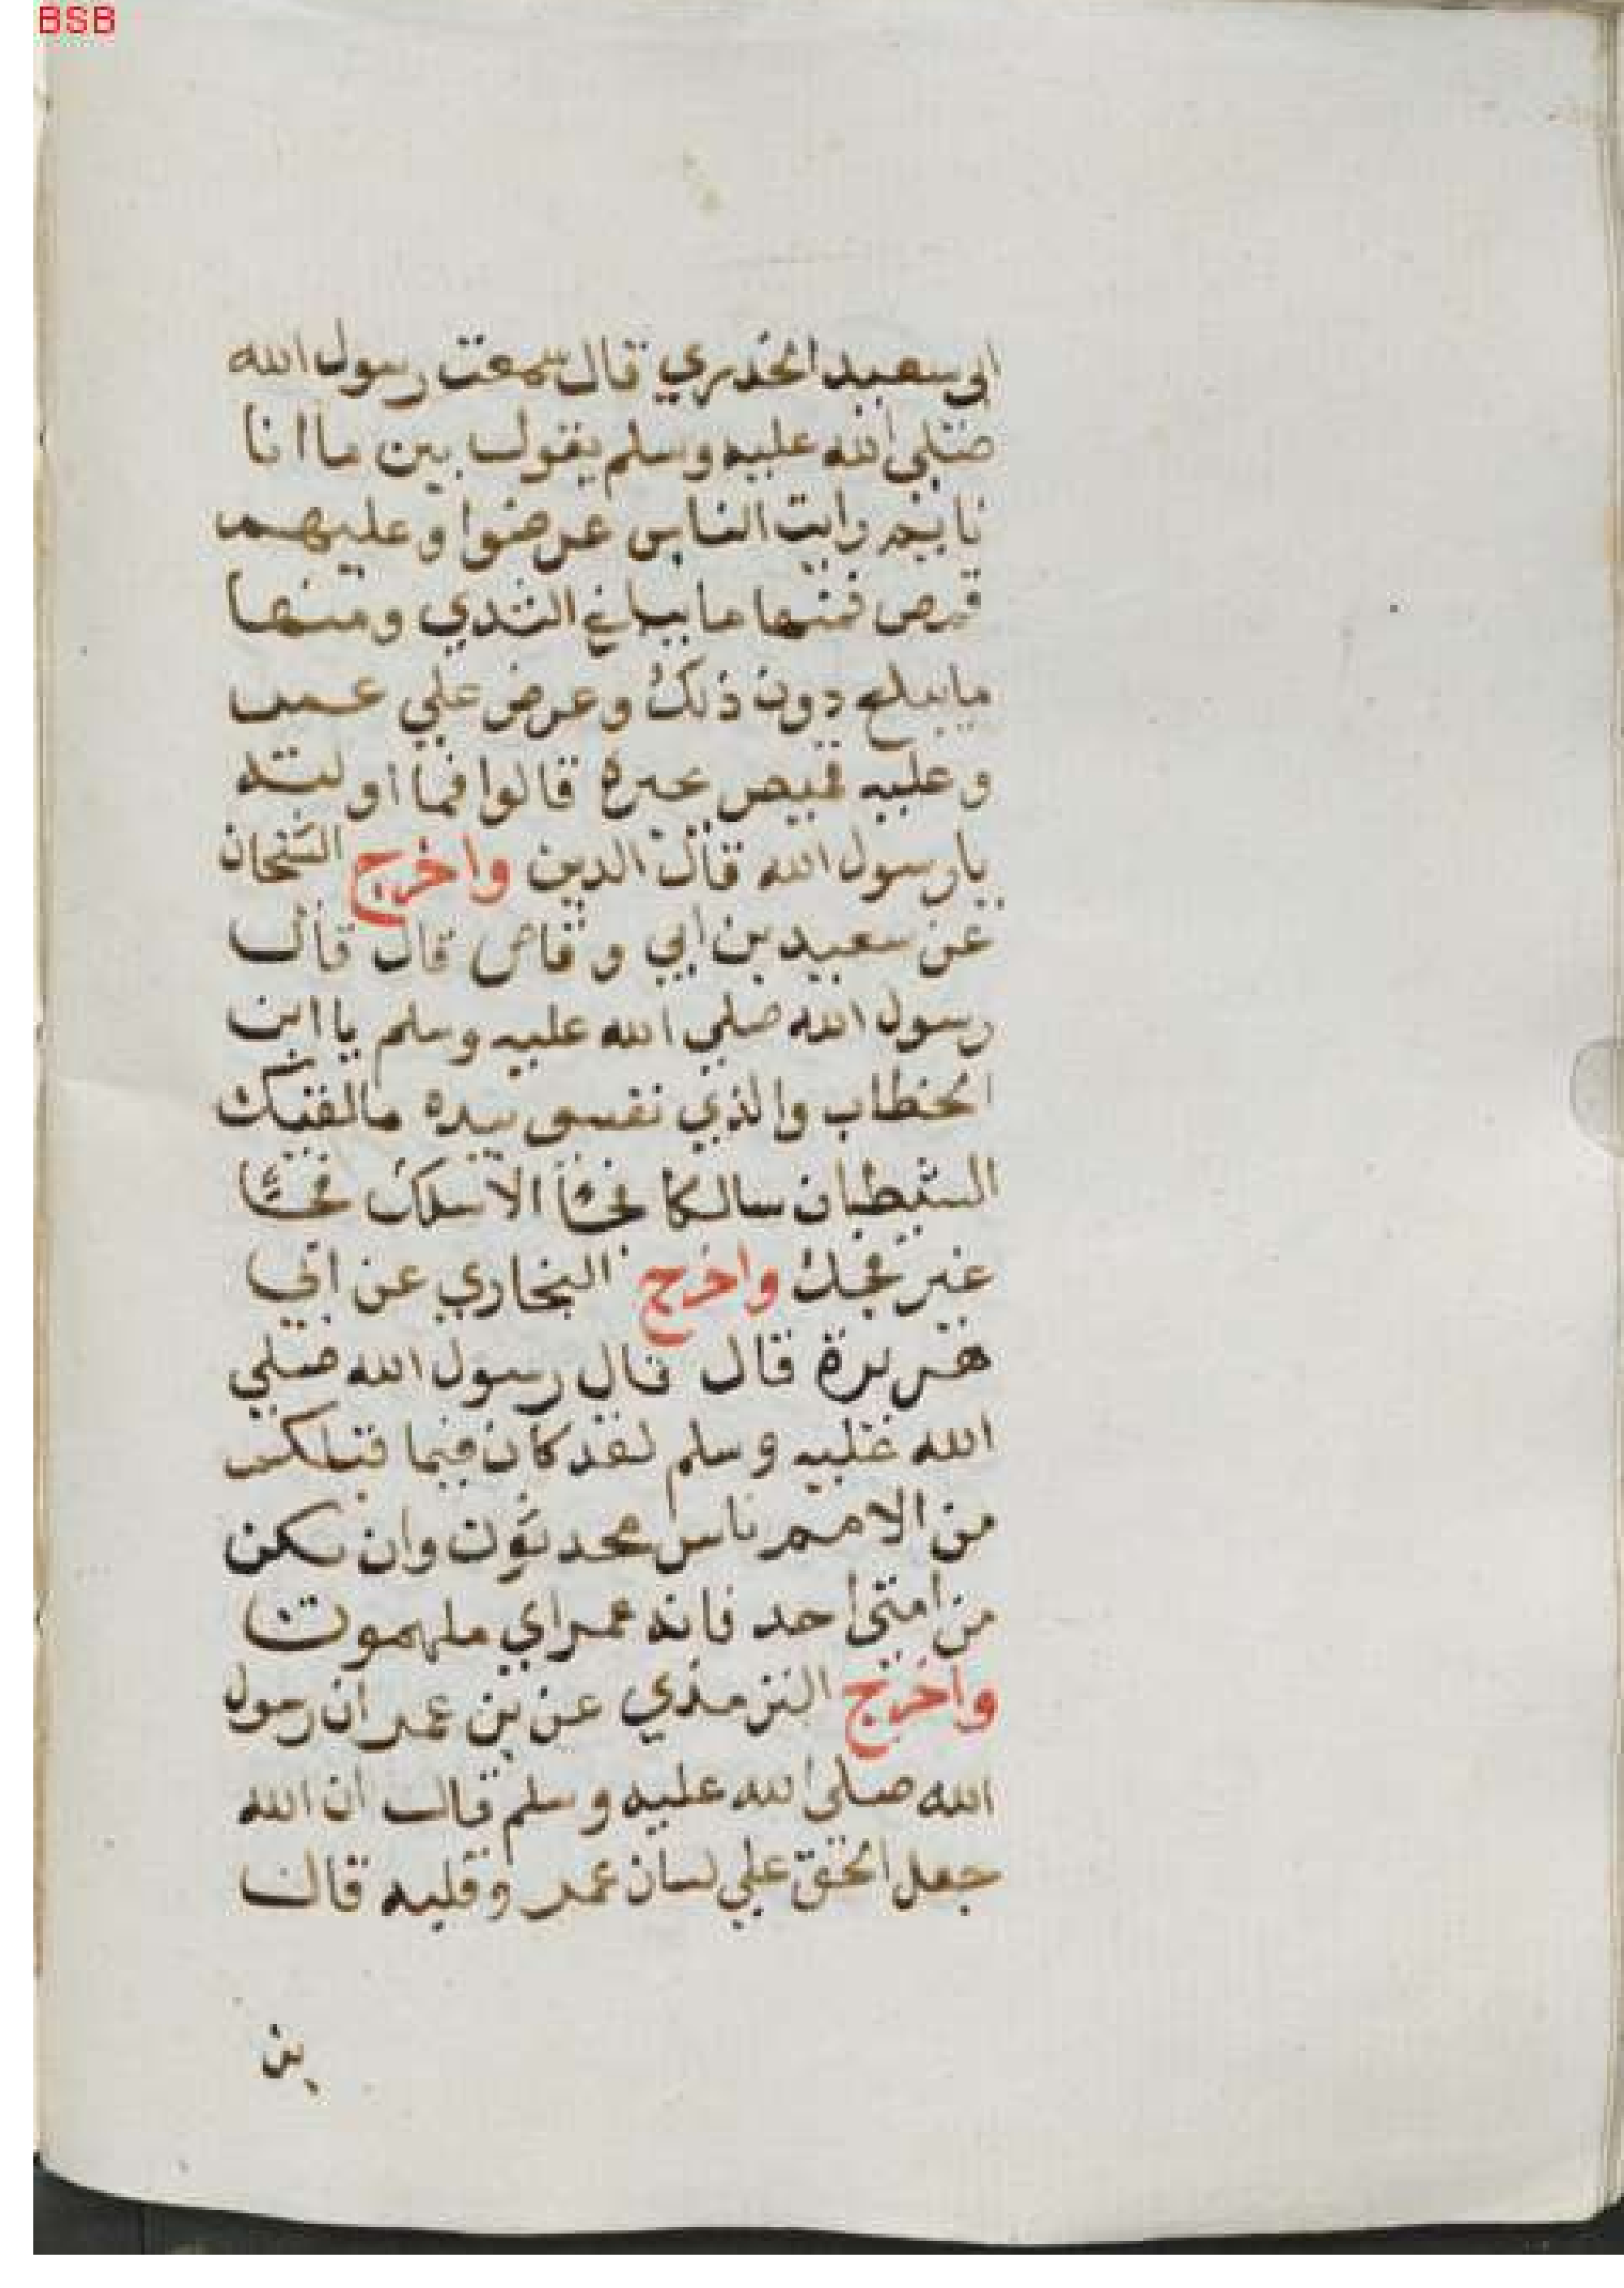 BSB
ابي سعيد الخدري قال سمعت رسول الله
صلي الله عليه وسلم يقول بين ما انا
نايم رايت الناس عرضوا وعليهم
قمص فمنها ما يبلغ الثدي ومنها
ما يبلغ دون ذلك وعرض علي عمر
وعليه قميص يجره قالوا فما اولته
يا رسول الله قال الدين واخرج الشخان
عن سعيد بن ابي وقاص قال قال
رسول الله صلي الله عليه وسلم يا ابن
الخطاب والذي نفسي بيده ما لقيك
الشيطان سالكا فجًّا الا سلك فجًّا
غير فجك واخرج البخاري عن ابي
هريرة قال قال رسول الله صلي
الله عليه وسلم لقد كان فيما قبلكم
من الامم ناس محدثون وان يكن
من امتي احد فانه عمر اي ملهمون
واخرج الترمذي عن بن عمر ان رسول
الله صلي الله عليه وسلم قال ان الله
جعل الحق علي لسان عمر وقلبه قال
بن